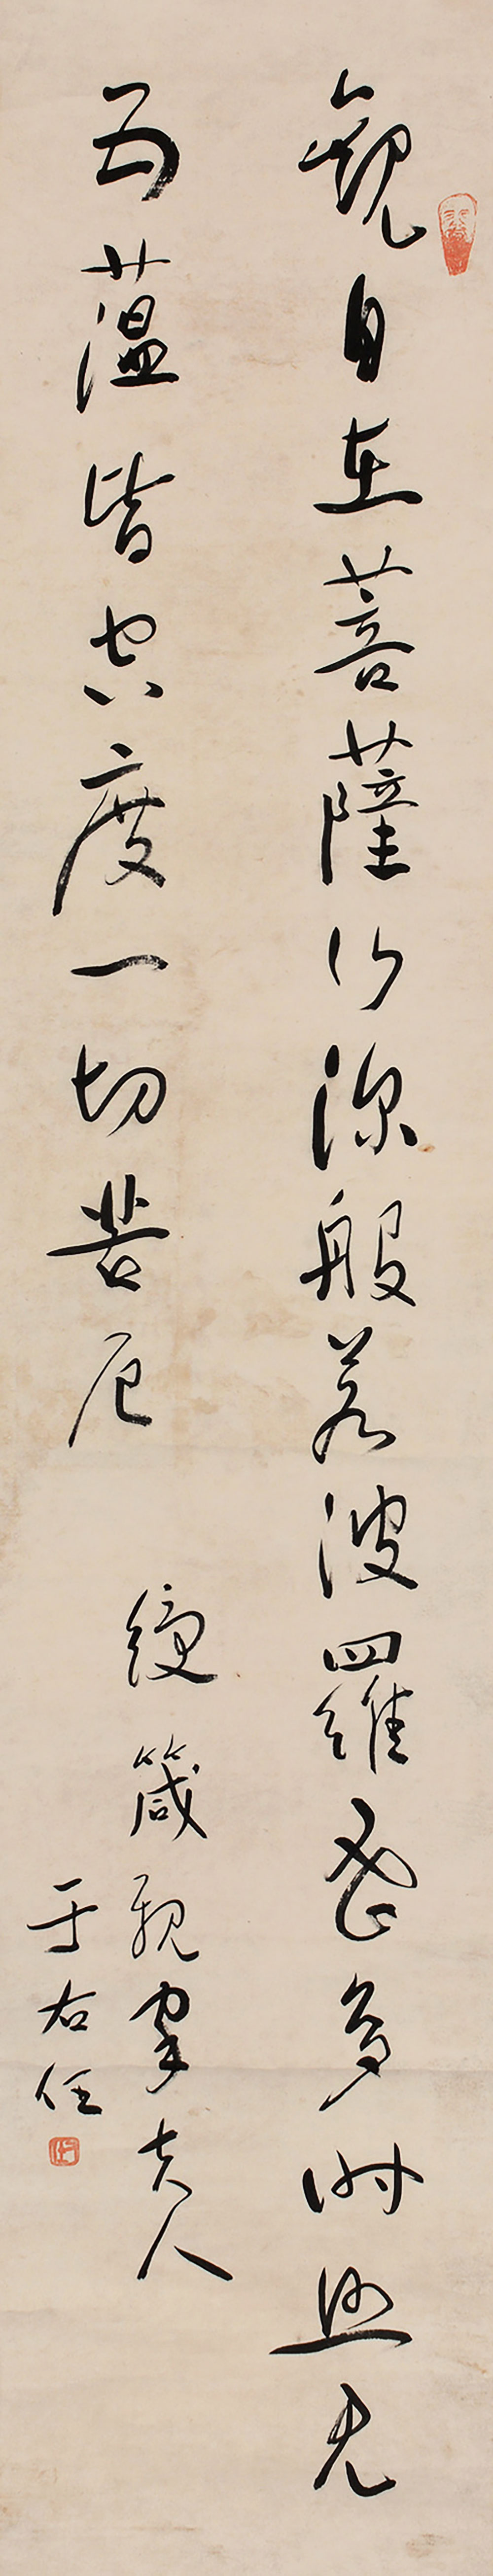 觀自在菩薩行深般若波羅蜜多時照見
五蘊皆空度一切苦厄
綬箴親家夫人
于右任